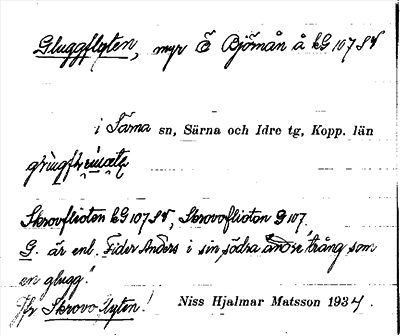 Gluggflyten, myr Ö Björnån å kG 107 SV
i Särna sn, Särna och Idre tg, Kopp. län
Skrovflioten kG 107 SV, Skrovoflioten G 107.
G. är enl. Fider Anders i sin södra ände "trång som
en glugg".
Jfr Skrovoflyten! Niss Hjalmar Matsson 1934.